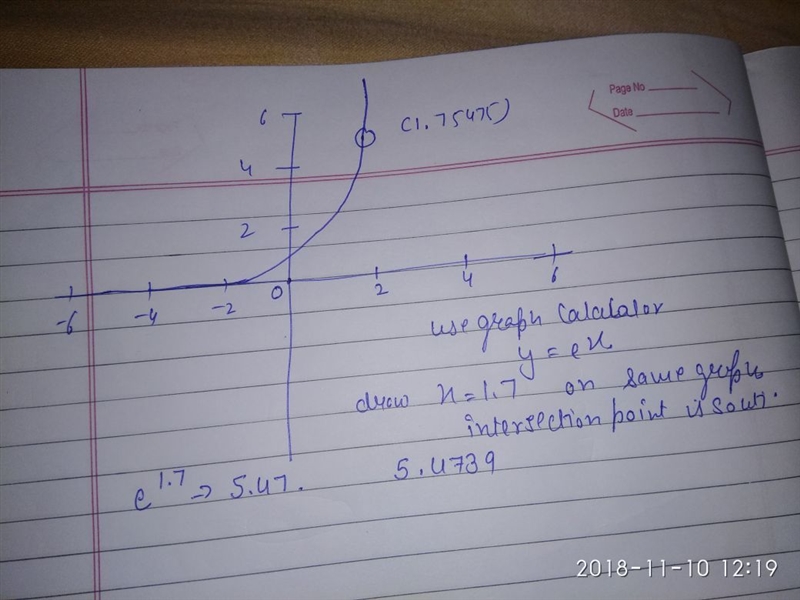 Page No
Date
6
(1.7 5475)
4
2
-6 -4 -2 0 2 4 6
use graph Calculator
y = e^x
draw x=1.7 on same graph
intersection point is
e^1.7 → 5.47. 5.4739
2018-11-10 12:19